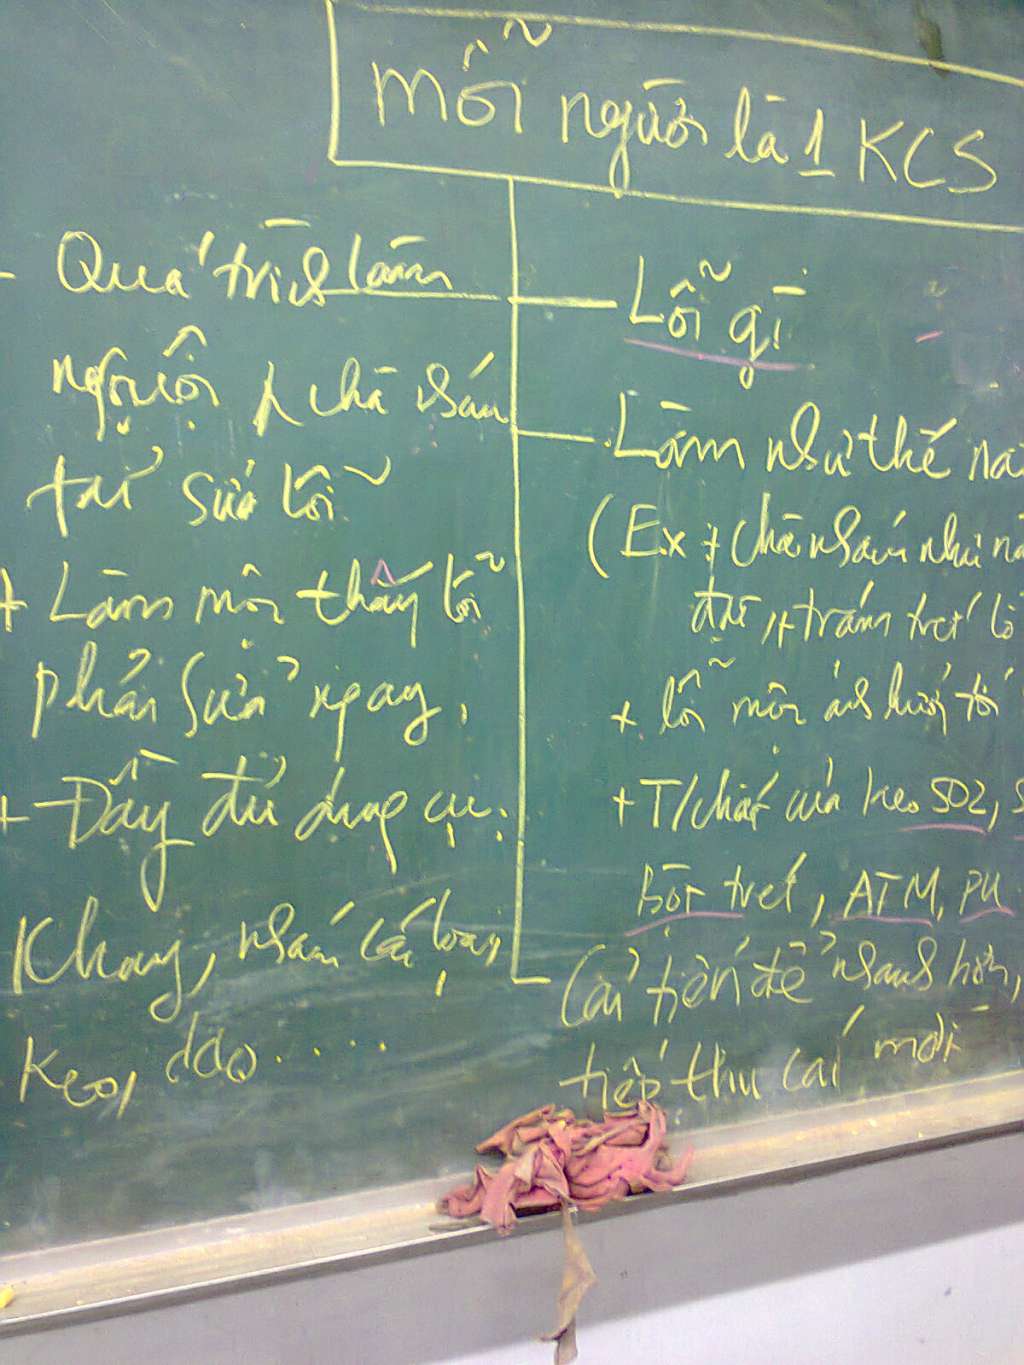 mỗi người là 1 KCS
- Quá trình làm
nguội, chà nhám
tự sửa lỗi
+ Làm mộc thấy lỗi
phải sửa ngay,
+ Đầy đủ dụng cụ:
Khay, nhám các loại,
keo, dao.....
Lỗi gì
Làm như thế
(Ex: + chà nhám như
+ trám trét
+ lỗi mộc ảnh hưởng tới
+ T/chất của keo 502,
Bột trét, ATM, PU
Cải tiến để nhanh hơn,
tiếp thu cái mới